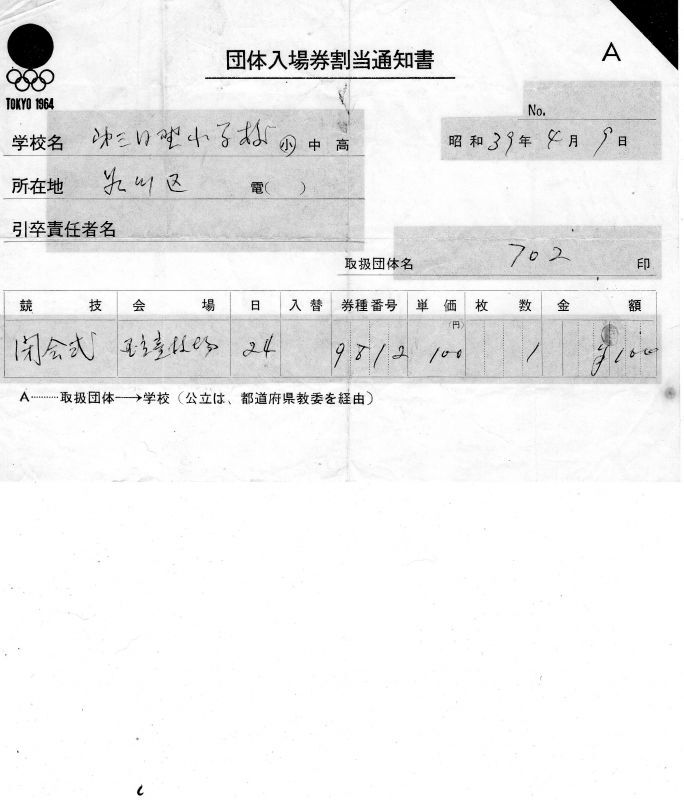 団体入場券割当通知書
A
TOKYO 1964
No.
学校名 第三日野小学校 ㊥小 中 高
昭和39年4月9日
所在地 品川区 電( )
引卒責任者名
取扱団体名 702 印
競技 会場 日 入替 券種番号 単価 枚数 金額
(円)
閉会式 国立競技場 24 9812 100 1 ¥100
A………取扱団体→学校(公立は、都道府県教委を経由)